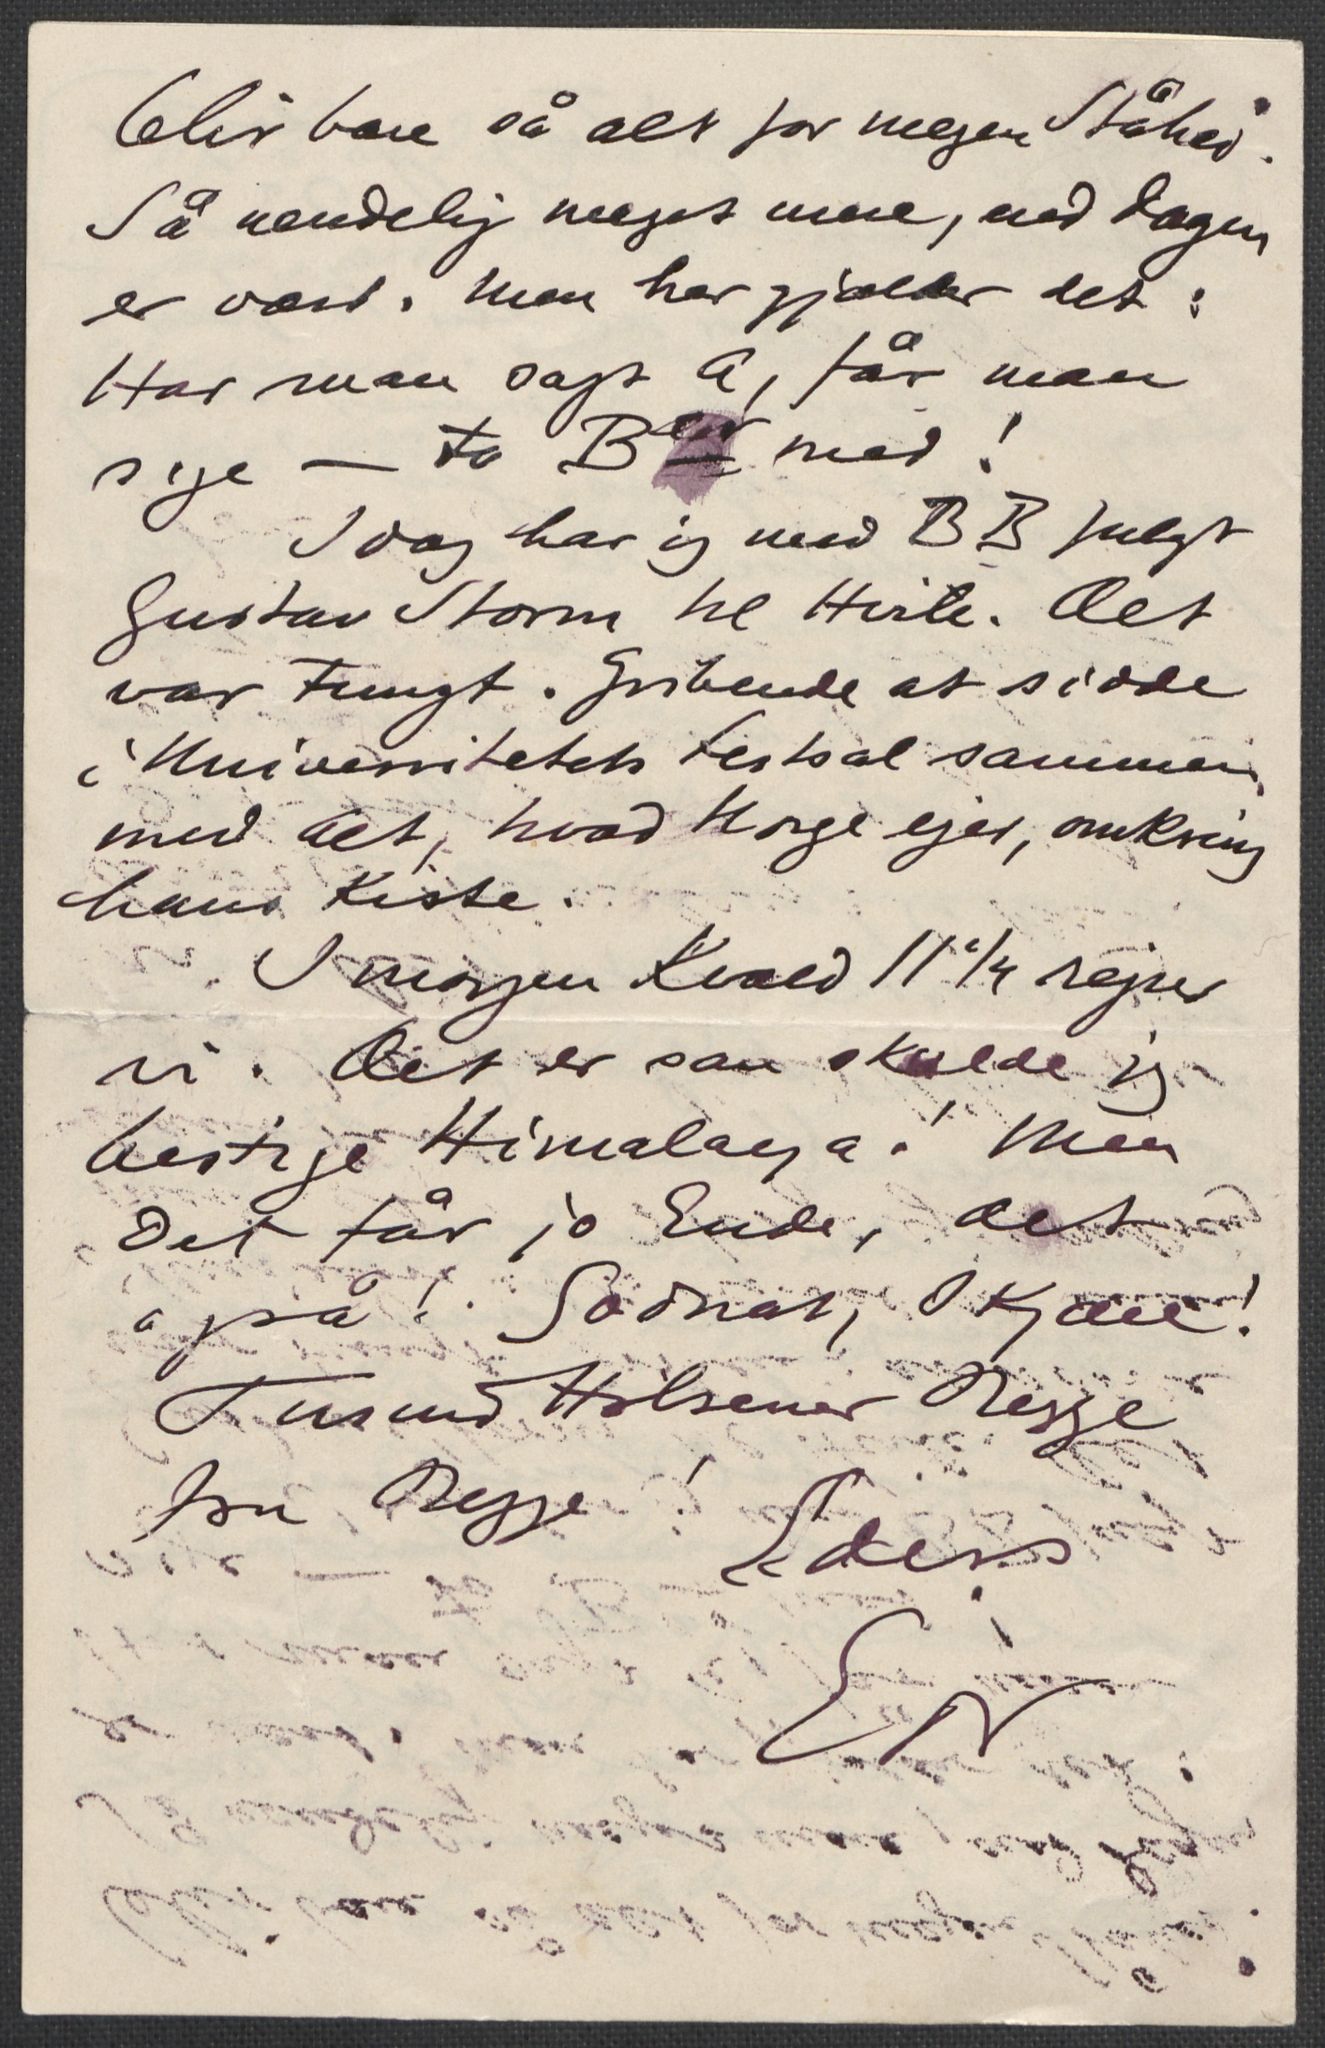 blir bare så alt for megen Ståhei.
Så uendelig meget mere, end Dagen
er værd. Men her gjælder det:
Har man sagt A, får man
sige — to B'er med!
Idag har jeg med BB fulgt
Gustav Storm til Hvile. Det
var tungt. Gribende at sidde
i Universitetets Festsal sammen
med Alt, hvad Norge ejer, omkring
hans Kiste.
Imorgen Kvæld 11 1/4 rejser
vi. Det er som skulde jeg
bestige Himalaya! Men
Det får jo Ende, det
også! Godnat, I Kjære!
Tusind Hilsener Begge
fra Begge!
Eders
EG